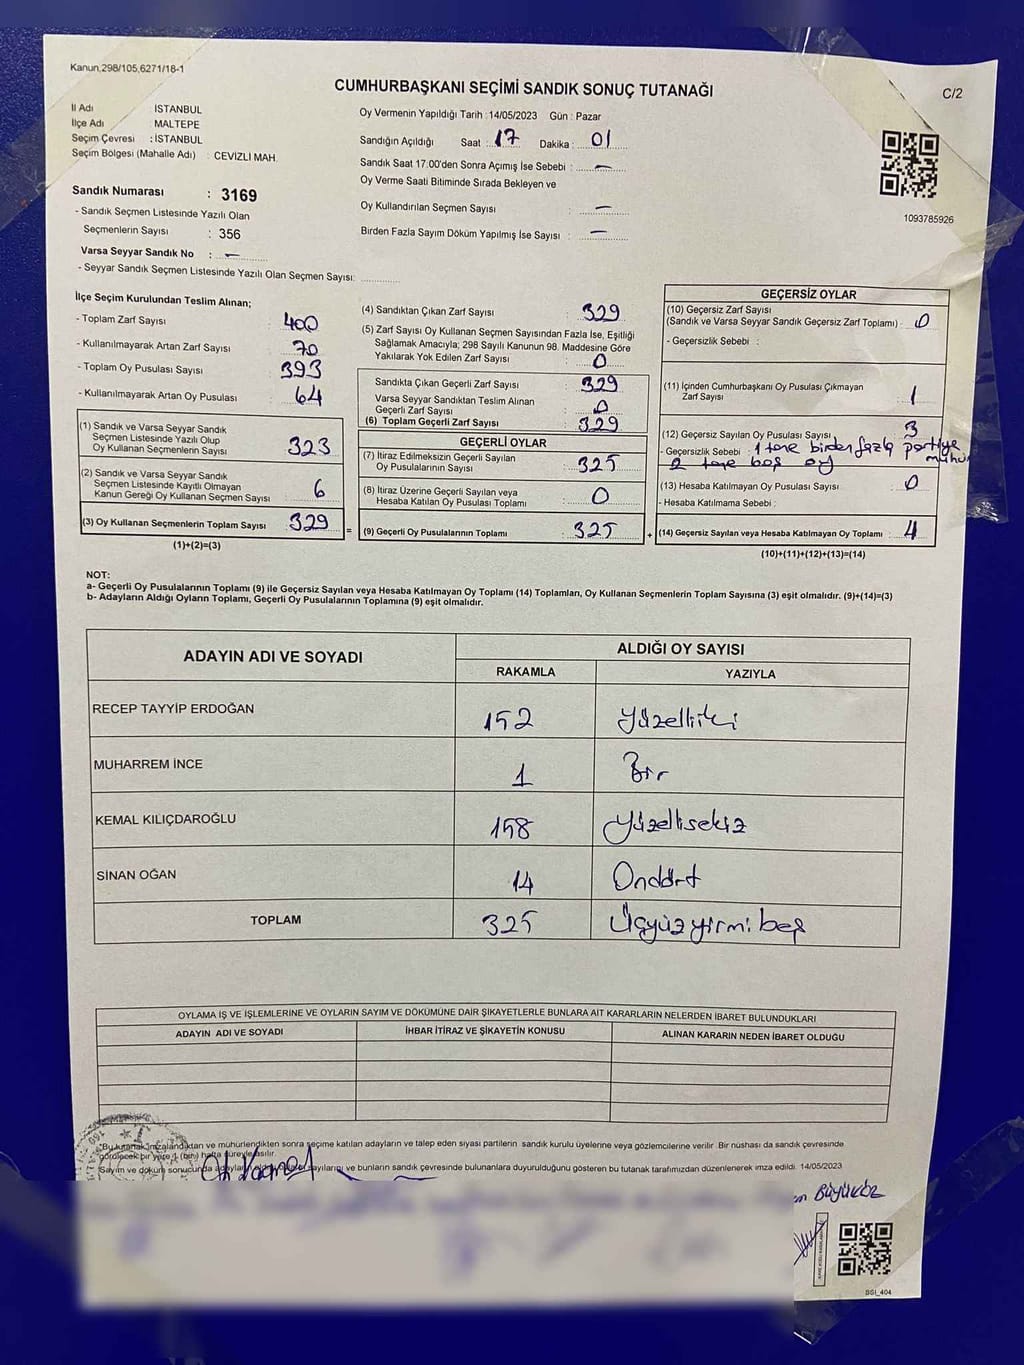 Kanun,298/105,6271/18-1
CUMHURBAŞKANI SEÇİMİ SANDIK SONUÇ TUTANAĞI
C/2
İl Adı İSTANBUL
İlçe Adı MALTEPE
Seçim Çevresi : İSTANBUL
Seçim Bölgesi (Mahalle Adı) : CEVİZLİ MAH.
Sandık Numarası : 3169
- Sandık Seçmen Listesinde Yazılı Olan
Seçmenlerin Sayısı : 356
Varsa Seyyar Sandık No : —
- Seyyar Sandık Seçmen Listesinde Yazılı Olan Seçmen Sayısı:
Oy Vermenin Yapıldığı Tarih : 14/05/2023 Gün : Pazar
Sandığın Açıldığı Saat : 17 Dakika : 01
Sandık Saat 17:00'den Sonra Açımış İse Sebebi : —
Oy Verme Saati Bitiminde Sırada Bekleyen ve
Oy Kullandırılan Seçmen Sayısı : —
Birden Fazla Sayım Döküm Yapılmış İse Sayısı : —
1093785926
İlçe Seçim Kurulundan Teslim Alınan;
- Toplam Zarf Sayısı : 400
- Kullanılmayarak Artan Zarf Sayısı : 70
- Toplam Oy Pusulası Sayısı : 393
- Kullanılmayarak Artan Oy Pusulası : 64
(1) Sandık ve Varsa Seyyar Sandık
Seçmen Listesinde Yazılı Olup
Oy Kullanan Seçmenlerin Sayısı : 323
(2) Sandık ve Varsa Seyyar Sandık
Seçmen Listesinde Kayıtlı Olmayan
Kanun Gereği Oy Kullanan Seçmen Sayısı : 6
(3) Oy Kullanan Seçmenlerin Toplam Sayısı : 329
(1)+(2)=(3)
(4) Sandıktan Çıkan Zarf Sayısı : 329
(5) Zarf Sayısı Oy Kullanan Seçmen Sayısından Fazla İse, Eşitliği
Sağlamak Amacıyla; 298 Sayılı Kanunun 98. Maddesine Göre
Yakılarak Yok Edilen Zarf Sayısı : 0
Sandıkta Çıkan Geçerli Zarf Sayısı : 329
Varsa Seyyar Sandıktan Teslim Alınan
Geçerli Zarf Sayısı : 0
(6) Toplam Geçerli Zarf Sayısı : 329
GEÇERLİ OYLAR
(7) İtiraz Edilmeksizin Geçerli Sayılan
Oy Pusulalarının Sayısı : 325
(8) İtiraz Üzerine Geçerli Sayılan veya
Hesaba Katılan Oy Pusulası Toplamı : 0
= (9) Geçerli Oy Pusulalarının Toplamı : 325
GEÇERSİZ OYLAR
(10) Geçersiz Zarf Sayısı
(Sandık ve Varsa Seyyar Sandık Geçersiz Zarf Toplamı) : 0
- Geçersizlik Sebebi :
(11) İçinden Cumhurbaşkanı Oy Pusulası Çıkmayan
Zarf Sayısı : 1
(12) Geçersiz Sayılan Oy Pusulası Sayısı : 3
- Geçersizlik Sebebi : 1 tane birden fazla partiye mühür
2 tane boş oy
(13) Hesaba Katılmayan Oy Pusulası Sayısı : 0
- Hesaba Katılmama Sebebi :
+ (14) Geçersiz Sayılan veya Hesaba Katılmayan Oy Toplamı : 4
(10)+(11)+(12)+(13)=(14)
NOT:
a- Geçerli Oy Pusulalarının Toplamı (9) ile Geçersiz Sayılan veya Hesaba Katılmayan Oy Toplamı (14) Toplamları, Oy Kullanan Seçmenlerin Toplam Sayısına (3) eşit olmalıdır. (9)+(14)=(3)
b- Adayların Aldığı Oyların Toplamı, Geçerli Oy Pusulalarının Toplamına (9) eşit olmalıdır.
ADAYIN ADI VE SOYADI ALDIĞI OY SAYISI
RAKAMLA YAZIYLA
RECEP TAYYİP ERDOĞAN 152 Yüzelliiki
MUHARREM İNCE 1 Bir
KEMAL KILIÇDAROĞLU 158 Yüzellisekiz
SİNAN OĞAN 14 Ondört
TOPLAM 325 Üçyüzyirmibeş
OYLAMA İŞ VE İŞLEMLERİNE VE OYLARIN SAYIM VE DÖKÜMÜNE DAİR ŞİKAYETLERLE BUNLARA AİT KARARLARIN NELERDEN İBARET BULUNDUKLARI
ADAYIN ADI VE SOYADI İHBAR İTİRAZ VE ŞİKAYETİN KONUSU ALINAN KARARIN NEDEN İBARET OLDUĞU
"Bu tutanak imzalandıktan ve mühürlendikten sonra seçime katılan adayların ve talep eden siyasi partilerin sandık kurulu üyelerine veya gözlemcilerine verilir. Bir nüshası da sandık çevresinde
görülecek bir yere 1 (bir) hafta süreyle asılır.
Sayım ve döküm sonucunda adayların sayılarını ve bunların sandık çevresinde bulunanlara duyurulduğunu gösteren bu tutanak tarafımızdan düzenlenerek imza edildi. 14/05/2023
BÜYÜKÖZ
SSİ_404